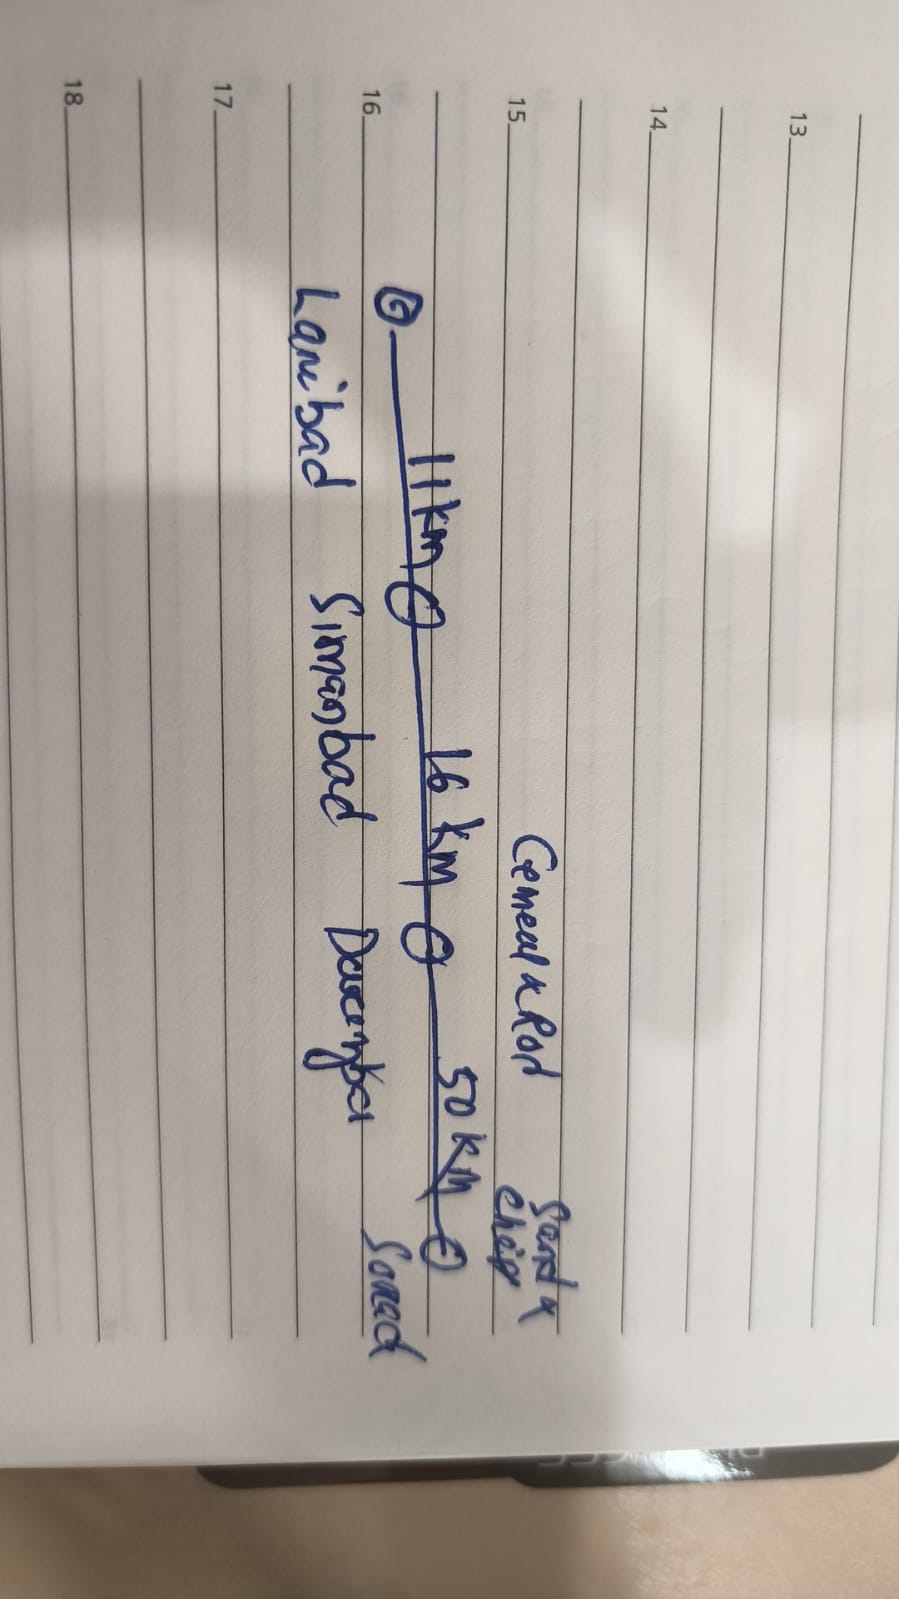 13
14
15
Cement & Rod
Sand &
Chip
16
11 km
16 km
50 km
Lamibad
Simanbad
Sonad
17
18